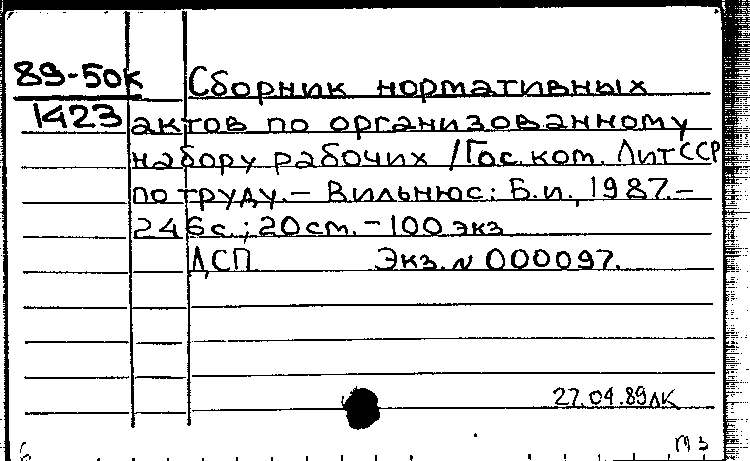 89-50к Сборник нормативных
1423 актов по организованному
набору рабочих / Гос. ком. ЛитССР
по труду. – Вильнюс: Б.и., 1987. –
246с.; 20см. – 100 экз
ДСП Экз. N 000097.
27.04.89